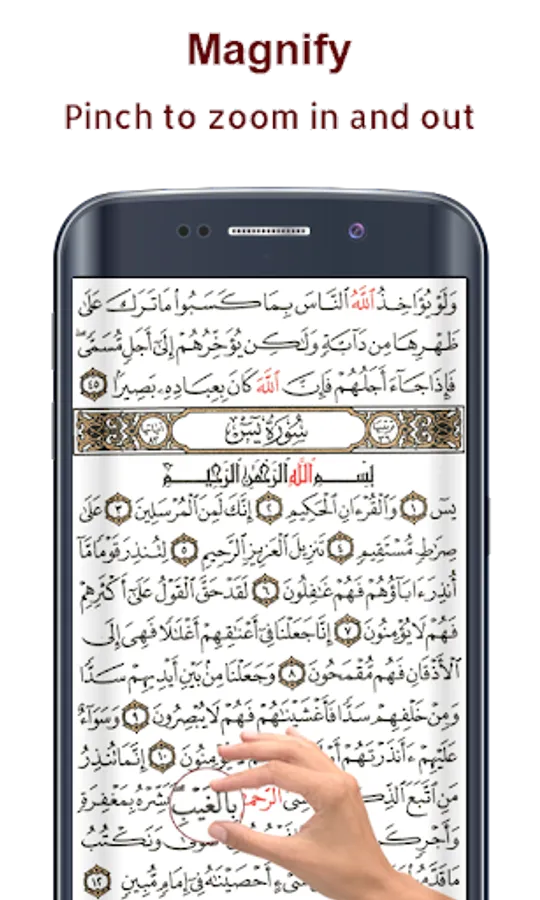 Magnify
Pinch to zoom in and out
وَلَوْ يُؤَاخِذُ ٱللَّهُ ٱلنَّاسَ بِمَا كَسَبُوا۟ مَا تَرَكَ عَلَىٰ
ظَهْرِهَا مِن دَآبَّةٍ وَلَٰكِن يُؤَخِّرُهُمْ إِلَىٰٓ أَجَلٍ مُّسَمًّى ۖ
فَإِذَا جَآءَ أَجَلُهُمْ فَإِنَّ ٱللَّهَ كَانَ بِعِبَادِهِۦ بَصِيرًۢا ٤٥
سُورَةُ يسٓ
بِسْمِ ٱللَّهِ ٱلرَّحْمَٰنِ ٱلرَّحِيمِ
يسٓ ١ وَٱلْقُرْءَانِ ٱلْحَكِيمِ ٢ إِنَّكَ لَمِنَ ٱلْمُرْسَلِينَ ٣ عَلَىٰ
صِرَٰطٍ مُّسْتَقِيمٍ ٤ تَنزِيلَ ٱلْعَزِيزِ ٱلرَّحِيمِ ٥ لِتُنذِرَ قَوْمًا مَّآ
أُنذِرَ ءَابَآؤُهُمْ فَهُمْ غَٰفِلُونَ ٦ لَقَدْ حَقَّ ٱلْقَوْلُ عَلَىٰٓ أَكْثَرِهِمْ
فَهُمْ لَا يُؤْمِنُونَ ٧ إِنَّا جَعَلْنَا فِىٓ أَعْنَٰقِهِمْ أَغْلَٰلًا فَهِىَ إِلَى
ٱلْأَذْقَانِ فَهُم مُّقْمَحُونَ ٨ وَجَعَلْنَا مِنۢ بَيْنِ أَيْدِيهِمْ سَدًّا
وَمِنْ خَلْفِهِمْ سَدًّا فَأَغْشَيْنَٰهُمْ فَهُمْ لَا يُبْصِرُونَ ٩ وَسَوَآءٌ
عَلَيْهِمْ ءَأَنذَرْتَهُمْ ١٠ إِنَّمَا تُنذِرُ
مَنِ ٱتَّبَعَ بِٱلْغَيْبِ بِمَغْفِرَةٍ
وَأَجْرٍ وَنَكْتُبُ
أَحْصَيْنَٰهُ فِىٓ إِمَامٍ مُّبِينٍ ١٢